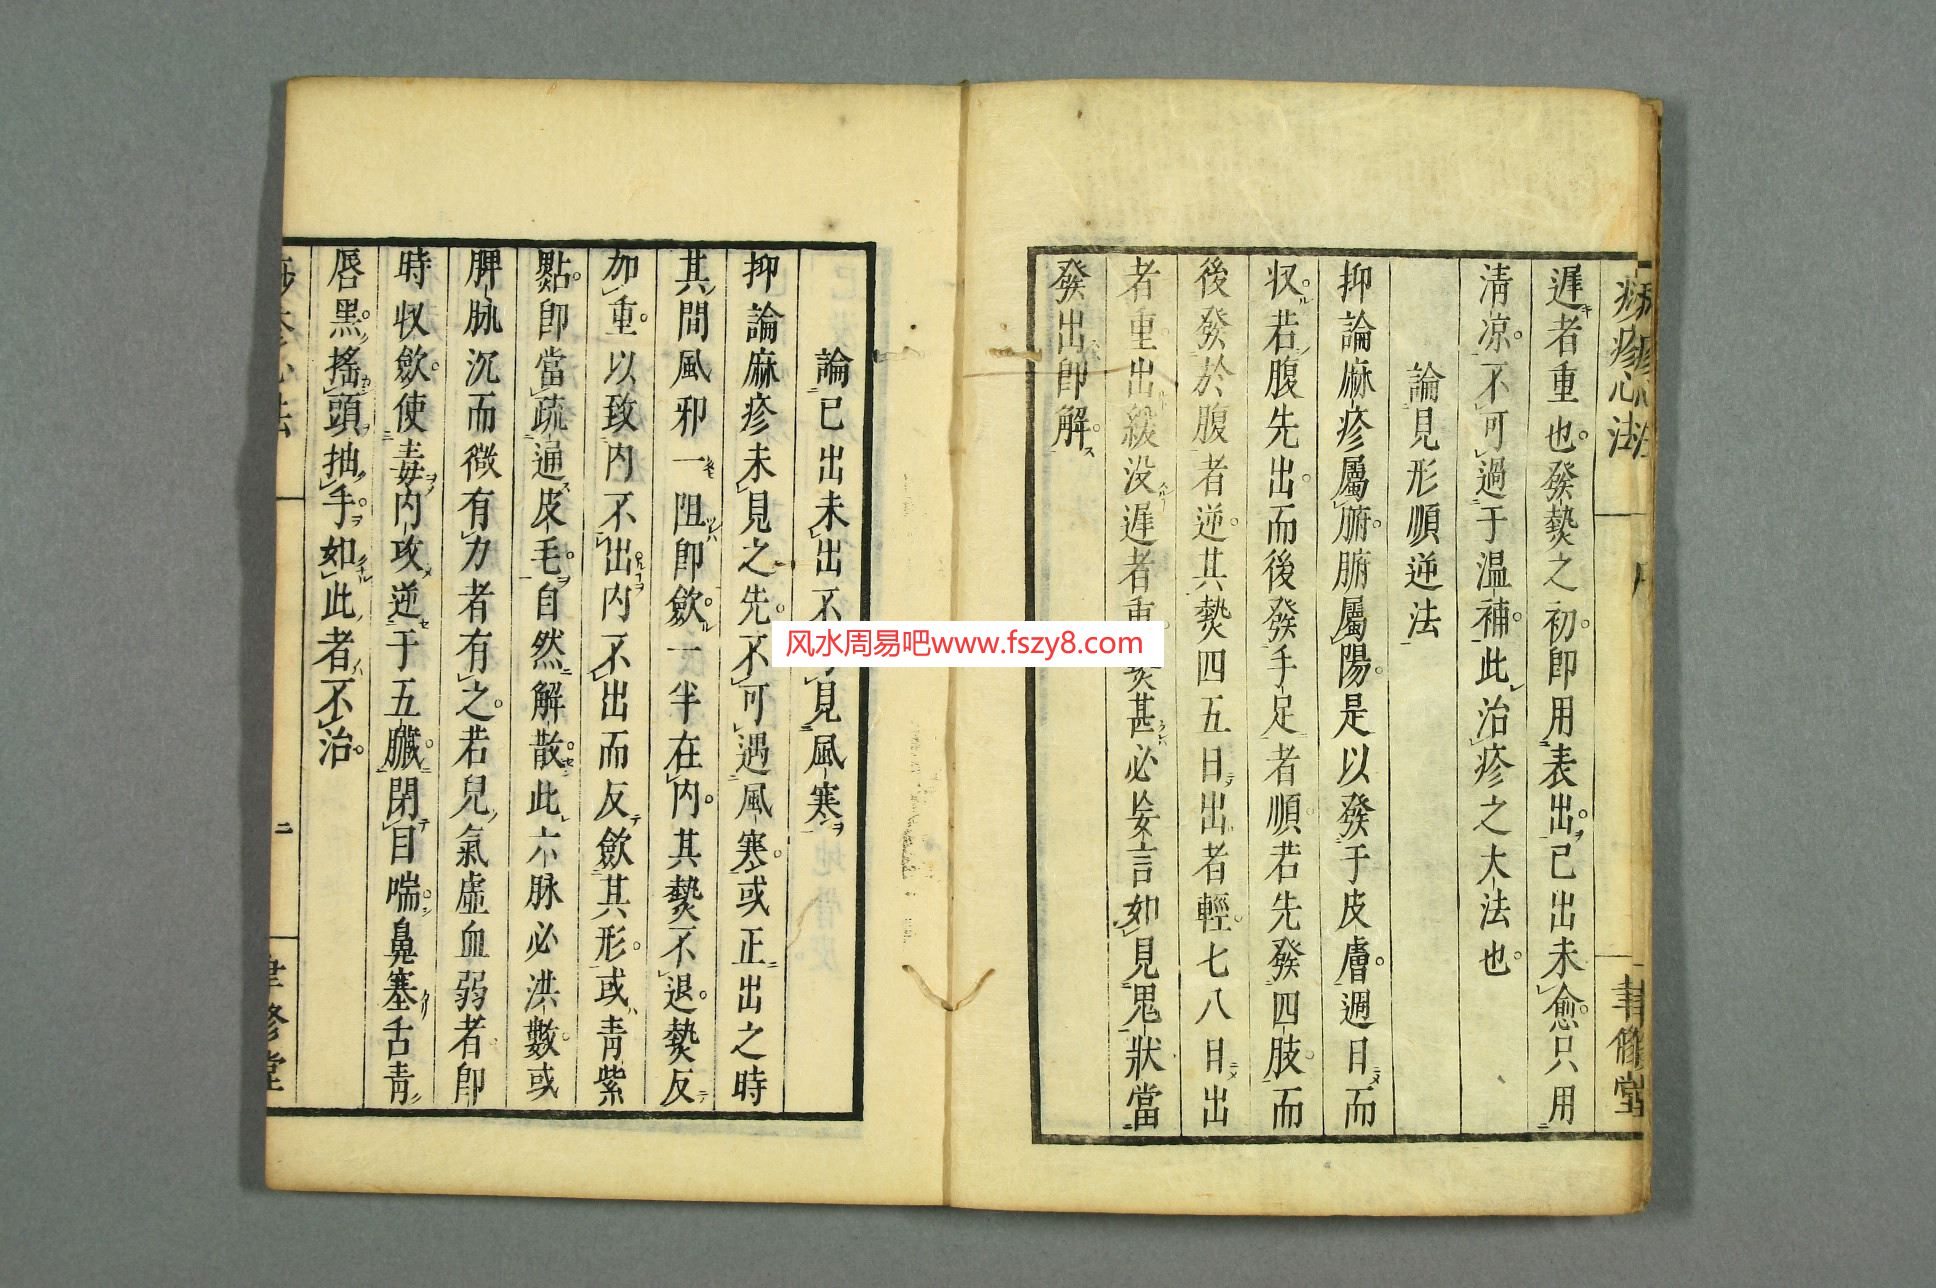 痧疹心法
聿脩堂
遅者重也。發𤍠之初。即用表出。已出未愈。只用
清凉。不可過于温補。此治疹之大法也。
論見形順逆法
抑論麻疹屬腑。腑屬陽。是以發于皮膚。週日而
収。若腹先出。而後發手足者順。若先發四肢。而
後發於腹者逆。其𤍠四五日出者輕。七八日出
者重。出緩没遅者重。𤍠甚必妄言如見鬼狀當
發出即解。
論已出未出不可見風寒
抑論麻疹未見之先。不可遇風寒。或正出之時
其間風邪一阻即歛。一半在内。其𤍠不退。𤍠反
加重。以致内不出内不出而反歛其形。或青紫
㸃。即當疏通皮毛。自然解散。此六脉必洪數。或
脾脉沉而微有力者有之。若兒氣虚血弱者。即
時収歛。使毒内攻逆于五臓。閉目喘。鼻塞舌青
唇黒。搖頭抽手。如此者不治。
二
聿脩堂
风水周易吧www.fszy8.com